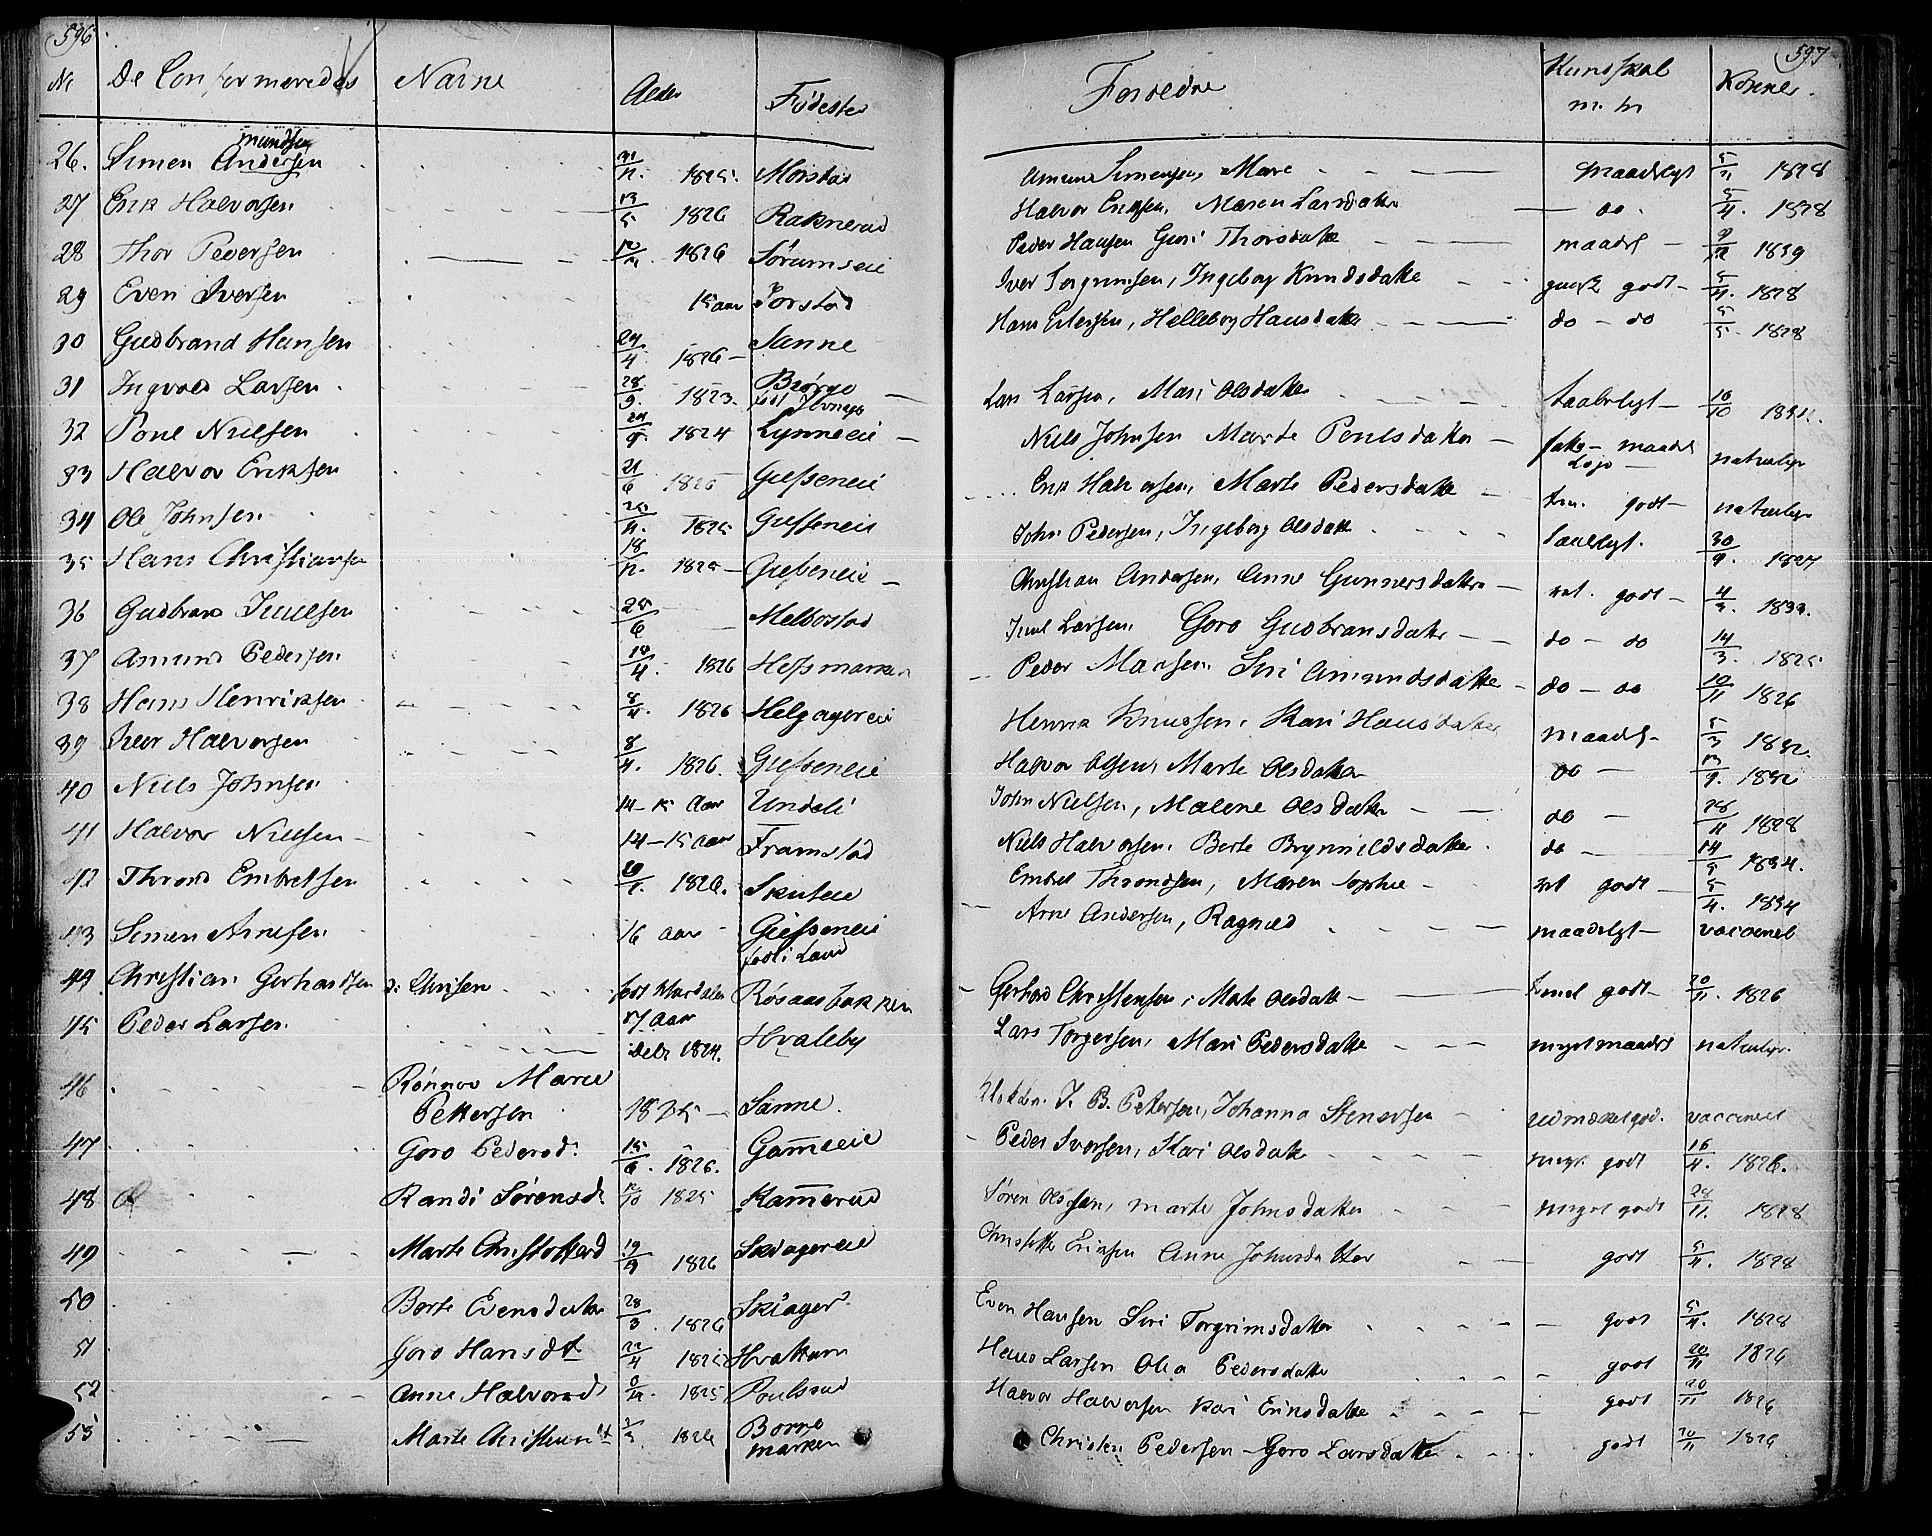 596
Nr De Confermeredes Navne Alder Fødested
26. Simen Andersen mundsen 31/12. 1825. Morstad
27 Erik Halvorsen 13/5 1826 Raknerud
28 Thor Pedersen 1826 Sørumseie
29 Even Iversen 15 aar Jorstad
30 Gudbrand Hansen 24/4. 1826 – Sanne
31 Ingvald Larsen 28/9. 1823. Bjørge
32 Poul Nielsen 1824 Lynneeie –
33 Halvor Eriksen 21/6 1826 Giefseneie
34 Ole Johnsen 1825 Giefseneie
35 Hans Christiansen 18/12. 1825 – Giefseneie –
36 Gudbrand Juulsen 25/6 Melbostad
37 Amund Pedersen 14/4. 1826 Hofsmarken
38 Hans Henriksen 8/4. 1826 Helgagereie
39 Iver Halvorsen 8/4. 1826. Giefseneie
40 Niels Johnsen 14–15 aar Undeli
41 Halvor Nielsen – 14–15 aar Framstad
42 Thrond Embretsen 1826. Skuteeie
43 Simen Arnesen 16 aar – Giefseneie
født i Land
44 Christian Gerhardsen Røsaasbakken
45 Peder Larsen 17 aar
Debr 1824. Hvaleby
46 Rønnov Marie
Pettersen 1825 – Sanne.
47 Goro Pedersd. 15/6. 1826. Gameie
48 Randi Sørensd 1825 Kamerud
49 Marte Christoffersd 19/3 1826 Skiagereie
50 Berte Evensdatter 28/3. 1826 Skiager
51 Goro Hansdt 22/4 1825 Hvattum
52 Anne Halvorsd 1825 Poulsrud
53 Marte Christensdt 1826 Borre
marken
597
Forældre Kundskab m. m Kopper.
Amund Simensen, Mare maadeligt 5/11 1828
Halvor Eriksen, Maren Larsdatter – do. 5/4. 1828
Peder Hansen Guri Thorsdatter maadel – 1839
Iver Torgrimsen, Ingeborg Knudsdatter godt – 5/4. 1828
Hans Erlersen, Helleborg Hansdatter do – do 5/5. 1828
Lars Larsen, Mari Olsdatter taaleligt – 10/10
Niels Johnsen Marte Poulsdatter – maadel naturlige
Erik Halvorsen, Marte Pedersdatter – godt – naturlige
John Pedersen, Ingeborg Olsdatter taaleligt. 30/9. 1827
Christian Andersen, Anne Gunnersdatter – godt – 4/3. 1833.
Juul Larsen, Goro Gudbransdatter do – do 14/3. 1825
Peder Madsen Siri Amundsdatter – do – do 10/11 1826
Henrik Knudsen, Kari Hansdatter maadel – 5/3 1832.
Halvor Olsen, Marte Olsdatter do – 13/9. 1832
John Nielsen, Malene Olsdatter do – 28/11 1828
Niels Halvorsen, Berte Brynnildsdatter do – 14/5 1834.
Embret Throndsen, Maren Sophie godt – 5/4. 1834
Arne Andersen, Ragnild maadeligt – vaccineret
Gerhard Christensen, Marte Olsdatter – godt – 20/11. 1826
Lars Torgersen, Mari Pedersdatter meget maadel naturlige.
J. B. Pettersen, Johanna Stenersen udmærket god. vaccineret
Peder Iversen, Kari Olsdatter meget godt 16/4. 1826.
Søren Olssen, Marte Johnsdatter meget godt 28/11. 1828
Christoffer Eriksen Anne Johnsdatter godt 5/4. 1828
Even Hansen Siri Torgrimsdatter godt 5/4. 1828
Hans Larsen Olea Pedersdatter godt 20/11 1826
Halvor Halvorsen Kari Eriksdatter godt 20/11 1826
Christen Pedersen – Goro Larsdatter godt 20/11 1826